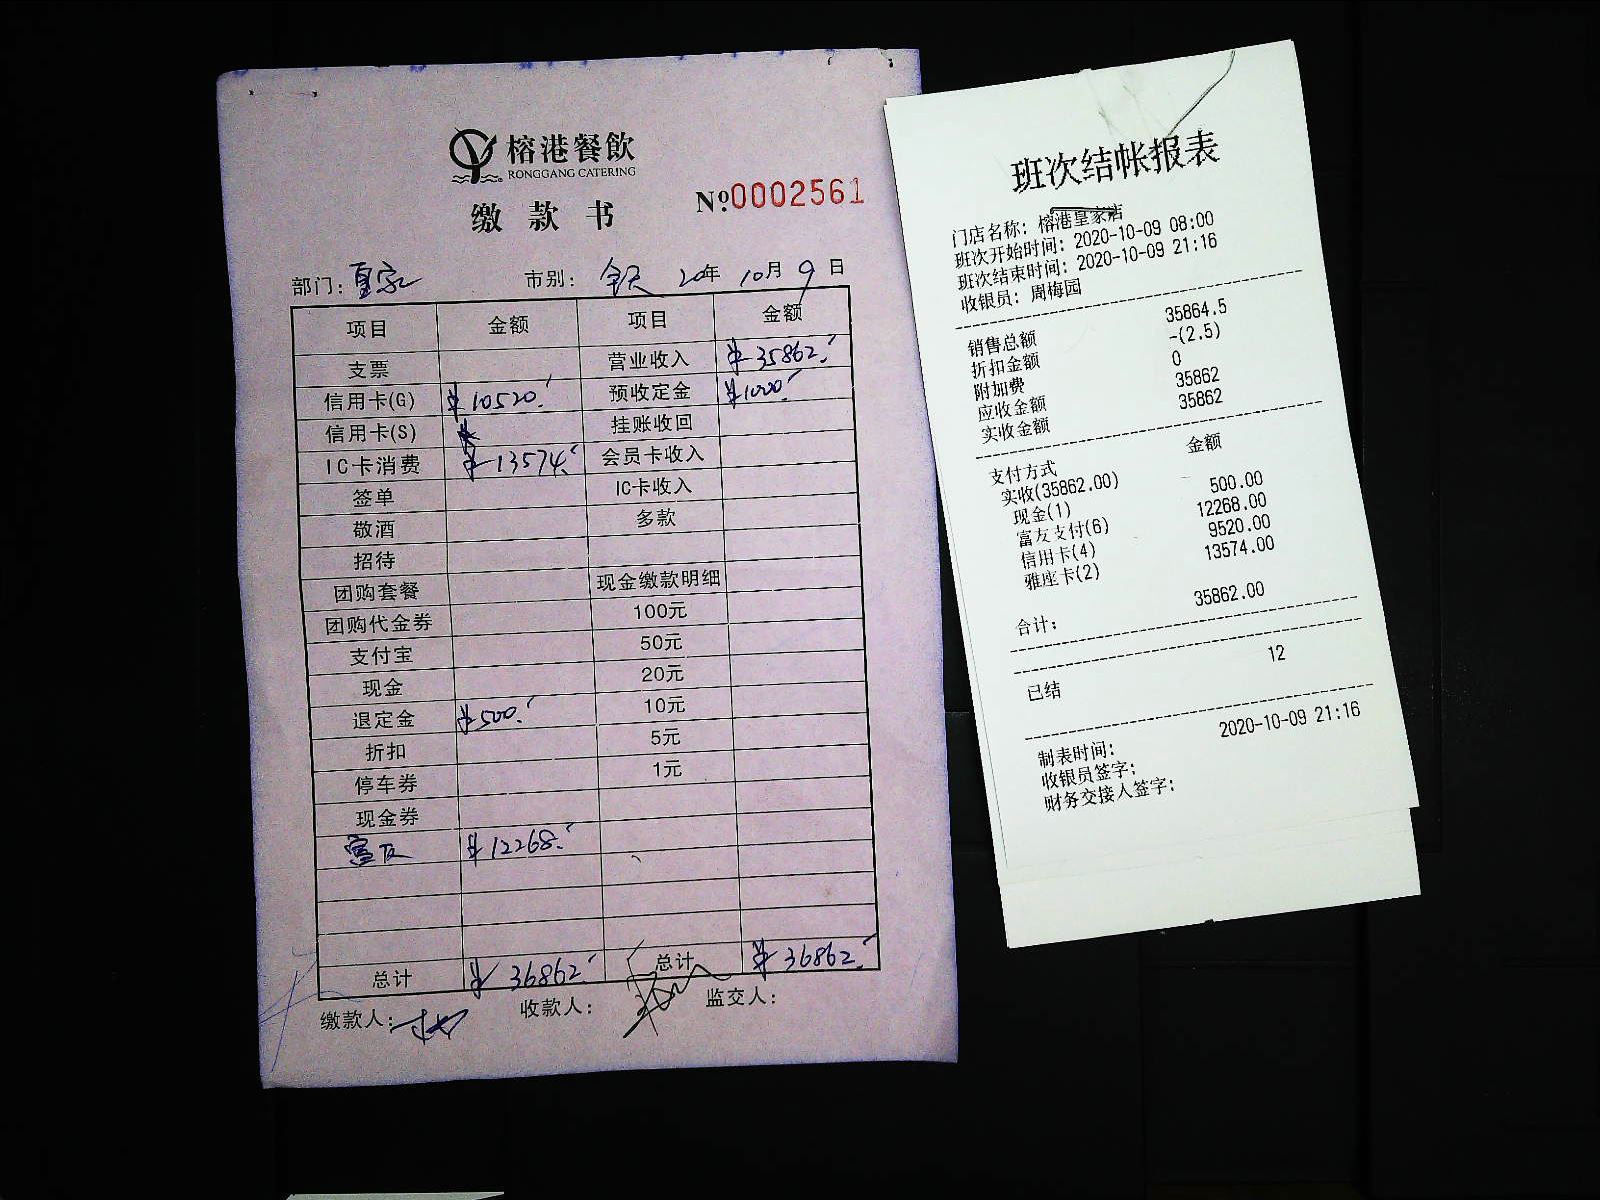 榕港餐飲
RONGGANG CATERING
缴款书
Nº0002561
部门：皇家 市别：全天 20年10月9日
项目 金额 项目 金额
支票 营业收入 ¥35862.
信用卡(G) ¥10520. 预收定金 ¥1000.
信用卡(S) 挂账收回
IC卡消费 ¥13574. 会员卡收入
签单 IC卡收入
敬酒 多款
招待
团购套餐 现金缴款明细
团购代金券 100元
支付宝 50元
现金 20元
退定金 ¥500. 10元
折扣 5元
停车券 1元
现金券
富友 ¥12268.
总计 ¥36862. 总计 ¥36862.
缴款人： 收款人： 监交人：
班次结帐报表
门店名称：榕港皇家店
班次开始时间：2020-10-09 08:00
班次结束时间：2020-10-09 21:16
收银员：周梅园
销售总额 35864.5
折扣金额 -(2.5)
附加费 0
应收金额 35862
实收金额 35862
支付方式 金额
实收(35862.00)
现金(1) 500.00
富友支付(6) 12268.00
信用卡(4) 9520.00
雅座卡(2) 13574.00
合计： 35862.00
已结 12
制表时间： 2020-10-09 21:16
收银员签字：
财务交接人签字：